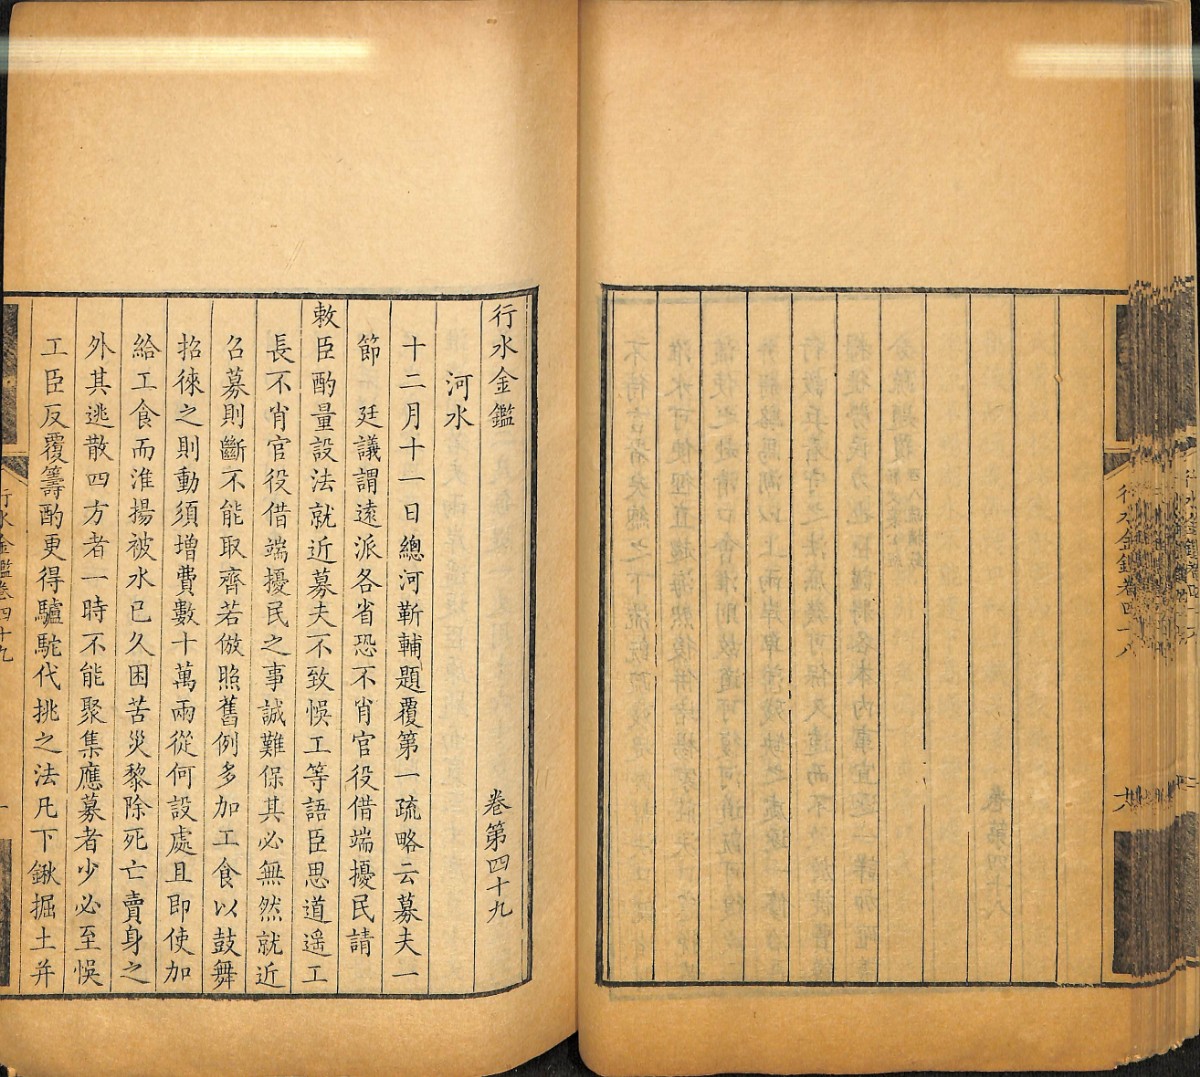 行水金鑑卷四十八
十八
行水金鑑　卷第四十九
河水
十二月十一日總河靳輔題覆第一疏略云募夫一
節　廷議謂遠派各省恐不肖官役借端擾民請
敕臣酌量設法就近募夫不致悞工等語臣思道遥工
長不肖官役借端擾民之事誠難保其必無然就近
召募則斷不能取齊若倣照舊例多加工食以鼓舞
招徠之則動須增費數十萬兩從何設處且即使加
給工食而淮揚被水已久困苦災黎除死亡賣身之
外其逃散四方者一時不能聚集應募者少必至悞
工臣反覆籌酌更得驢駝代挑之法凡下鍬掘土并
行水金鑑卷四十九
一